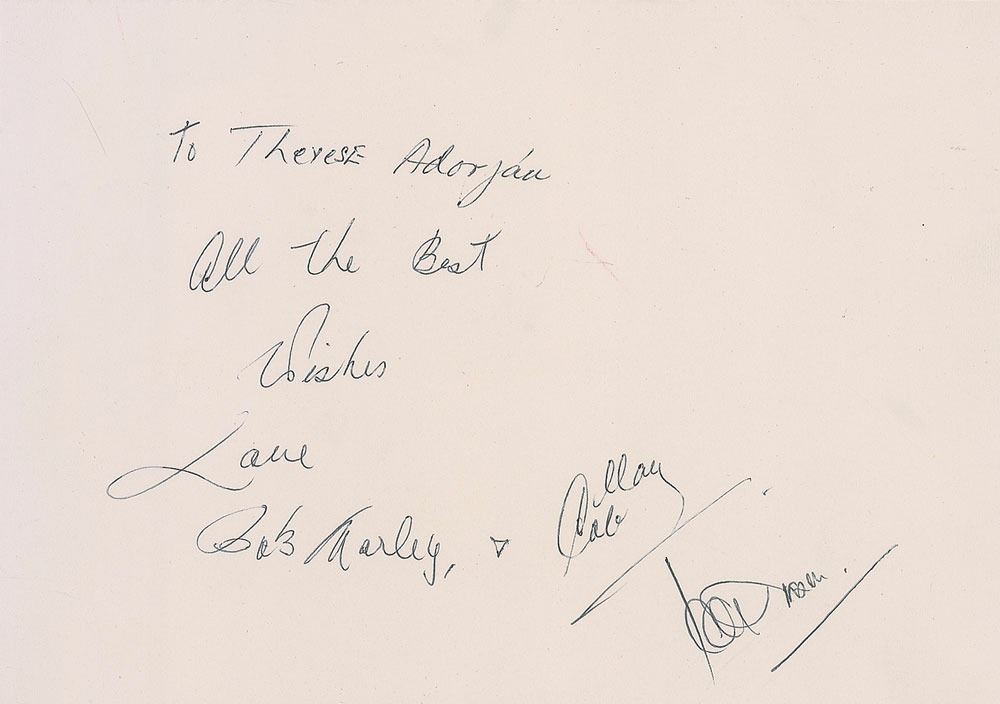 To Therese Adorján
All the Best
Wishes
Love
Bob Marley,